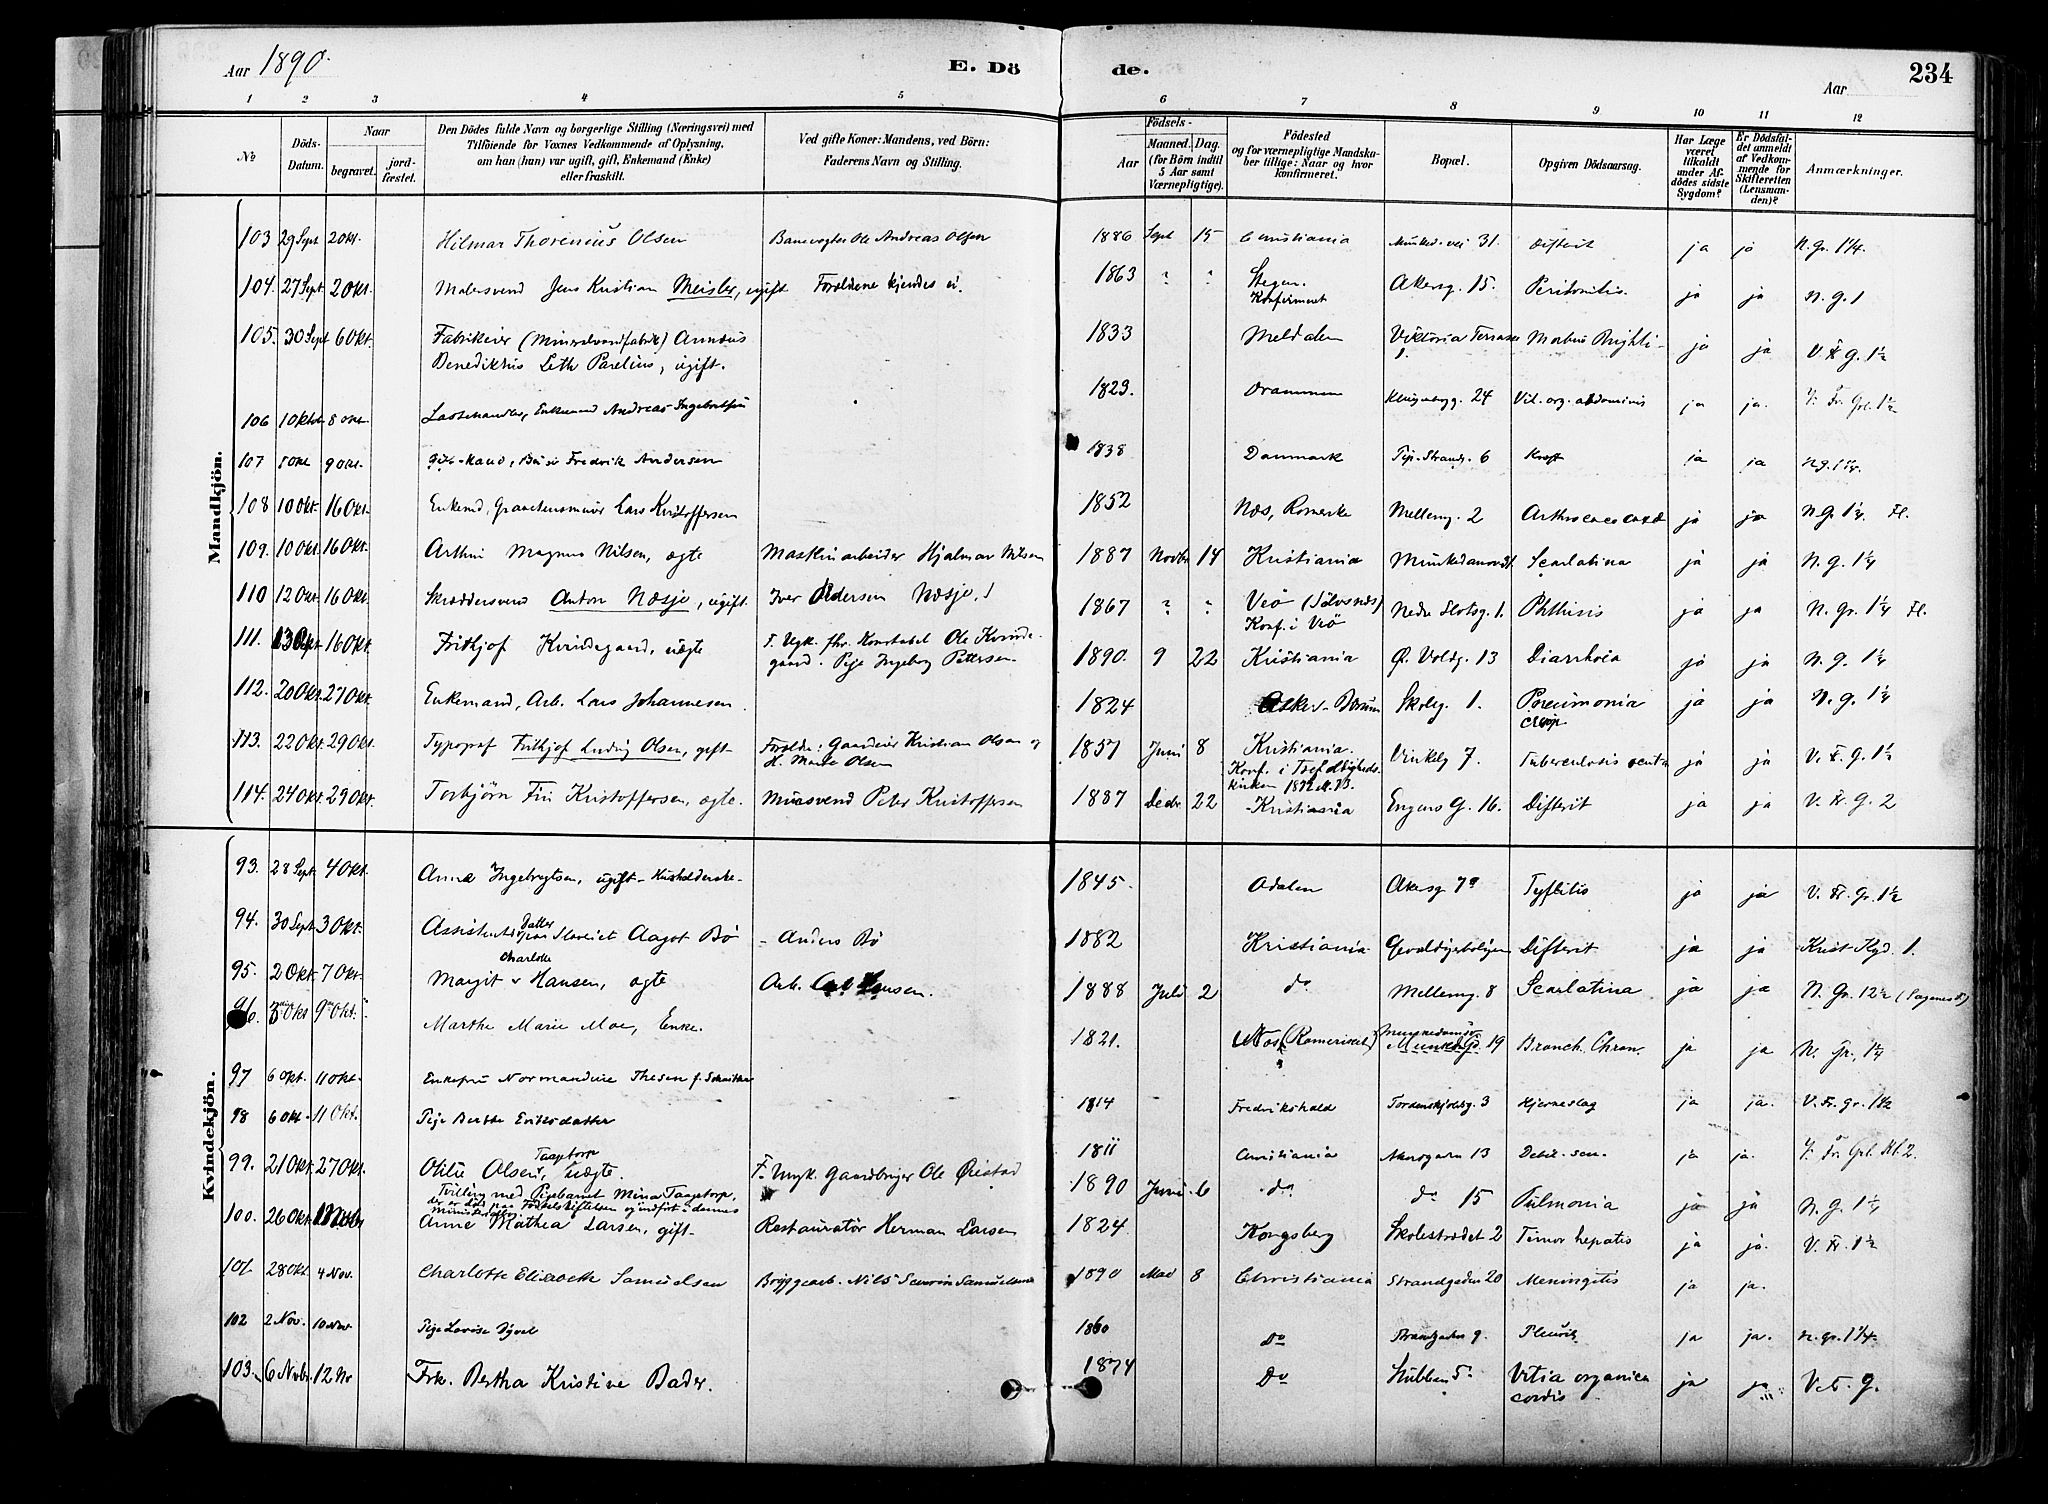 Aar 1890.
E. Dö
de.
Aar
234
1 2 3 4 5 6 7 8 9 10 11 12
No
Döds-Datum.
Naar
begravet.
jord-fæstet.
Den Dödes fulde Navn og borgerlige Stilling (Næringsvei) med
Tilföiende for Voxnes Vedkommende af Oplysning,
om han (hun) var ugift, gift, Enkemand (Enke)
eller fraskilt.
Ved gifte Koner: Mandens, ved Börn:
Faderens Navn og Stilling.
Födsels-
Aar
Maaned. Dag.
(for Börn indtil
5 Aar samt
Værnepligtige).
Födested
og for værnepligtige Mandska-
ber tillige: Naar og hvor
konfirmeret.
Bopæl.
Opgiven Dödsaarsag.
Har Læge
været
tilkaldt
under Af-
dödes sidste
Sygdom?
Er Dödsfal-
det anmeldt
af Vedkom-
mende for
Skifteretten
(Lensman-
den)?
Anmærkninger.
Mandkjön.
103 29 Sept 2 Okt. Hilmar Thorenius Olsen Banevogter Ole Andreas Olsen 1886 Sept 15 Christiania 31. Difterit ja ja N. Gr. 1 1/4.
104. 27 Sept. 2 Okt. Malersvend Jens Kristian Meisler, ugift Forældrene kjendes ei. 1863 " " Stegen. Konfirmeret Akersg. 15. Peritonitis. ja ja N. g. 1
105. 30 Sept 6 Okt. Fabrikeier (Mineralvandfabrik)
Benediktus Leth Parelius, ugift. 1833 Meldalen Viktoria Terrasse 1. Morbus Brighti ja ja V. Fr. g. 1 1/2
106 1 Oktob 8 Enkemand Andreas Ingebretsen 1823. Drammen 24 Vit. org. abdominis ja ja. V. Fr. Grl. 1 1/2
107 9 Okt. Fredrik Andersen 1838 Danmark Pip. Strandg. 6 Kræft ja ja N. g. 1 1/4.
108 10 Okt. 16 Okt. Enkemd, Lars Kristoffersen 1852 Næs, Romerike Mellemg. 2 ja ja N. G. 1 1/4. Fl.
109. 10 Okt. 16 Okt. Arthur Magnus Nilsen, ægte Maskinarbeider Hjalmar Nilsen 1887 Novbr 14 Kristiania Scarlatina ja ja N. G. 1 1/4
110 12 Okt. 16 Okt. Skræddersvend Anton Næsje, ugift. Iver Pedersen Næsje. 1867 " " Veö (Sølvsnæs) Konf. i Veö Nedre Slotsg. 1. Phthisis ja ja N. Gr. 1 1/4 Fl.
111. 18 Okt. Frithjof Kvindegaard, uægte F. Ugk. fhv. Konstabel Ole Kvinde-
gaard. Pige Ingeborg Pettersen. 1890. 9 22 Kristiania Ø. Voldg. 13 Diarrhoea ja ja N. g. 1 1/4
112. 20 Okt. 27 Okt. Enkemand, Arb. Lars Johannesen. 1824 Asker - Bærum Skoleg. 1. Pneumonia croup. ja ja N. g. 1 1/4
113. 22 Okt. 29 Okt. Typograf Frithjof Ludvig Olsen, gift Forældre: Gaardeier Kristian Olsen og
H. Marte Olsen 1857 Juni 8 Kristiania.
Konf. i Trefoldigheds
kirken Vinkelg 7. Tuberculosis acuta ja ja V. F. G. 1 1/2
114. 24 Okt. 29 Okt. Torbjörn Kristoffersen, ægte. Mursvend Peter Kristoffersen 1887 Decbr. 22 Kristiania Engens G. 16. Difterit ja ja V. Fr. G. 2
Kvindekjön.
93. 28 Sept. 4 Okt. Anna Ingebrigtsen, ugift - Husholderske 1845. Adalen Akersg 7a Tyflitis ja ja V. Fr. Gr. 1 1/2
94. 30 Sept 3 Okt. Datter Aagot Bø Anders Bø 1882 Kristiania. Difterit ja ja Krist. Kgd. 1.
95. 2 Okt. 7 Okt. Margit Charlotte Hansen, ægte Arb. Hansen. 1888 Juli 2 do Mellemg. 8 Scarlatina ja ja N. Gr. 1 1/2
96. 3 Okt 9 Okt. Marthe Marie Moe, Enke. 1821. Næs (Romeriket) 19 Bronch. Chron. ja ja N. Gr. 1 1/4
97 6 Okt. 11 Okt. Enkefru Normandine Thesen f. 1814 Fredrikshald Tordenskjoldsg. 3 Hjerneslag ja ja. V. Fr. gr. 1 1/2
98 6 Okt. 11 Okt. Pige Berthe Eriksdatter 1811 Christiania Akersgaden 13 Debil. sen. ja ja.
99. 21 Okt. 27 Okt. Otilie Olsen Taagtorp, uægte. F. Ungk. Gaardbruger Ole Øistad 1890 Juni 6 do do 15 Pulmonia ja ja N. G. 1 1/4
Tvilling med Pigebarnet Mina Taagtorp,
100. 26 Okt. Anne Mathea Larsen, gift Restauratør Herman Larsen 1824 Kongsberg Skolestrædet 2 Tumor hepatis ja ja. V. Fr. 1 1/2
101 28 Okt 4 Nov. Charlotte Elisabeth Samuelsen Bryggearb. Nils Severin Samuelsen 1890 Mai 8 Christiania Strandgaden 20 Meningitis ja ja.
102 2 Nov. 10 Nov. Pige Lovise 1860 Do Strandgaden 9. Pleurit ja ja. N. gr. 1 1/4
103. 6 Novbr 12 Nv Frk. Bertha Kristine Bader. 1874 Do 5 Vitia organica cordis ja ja V. F. g.